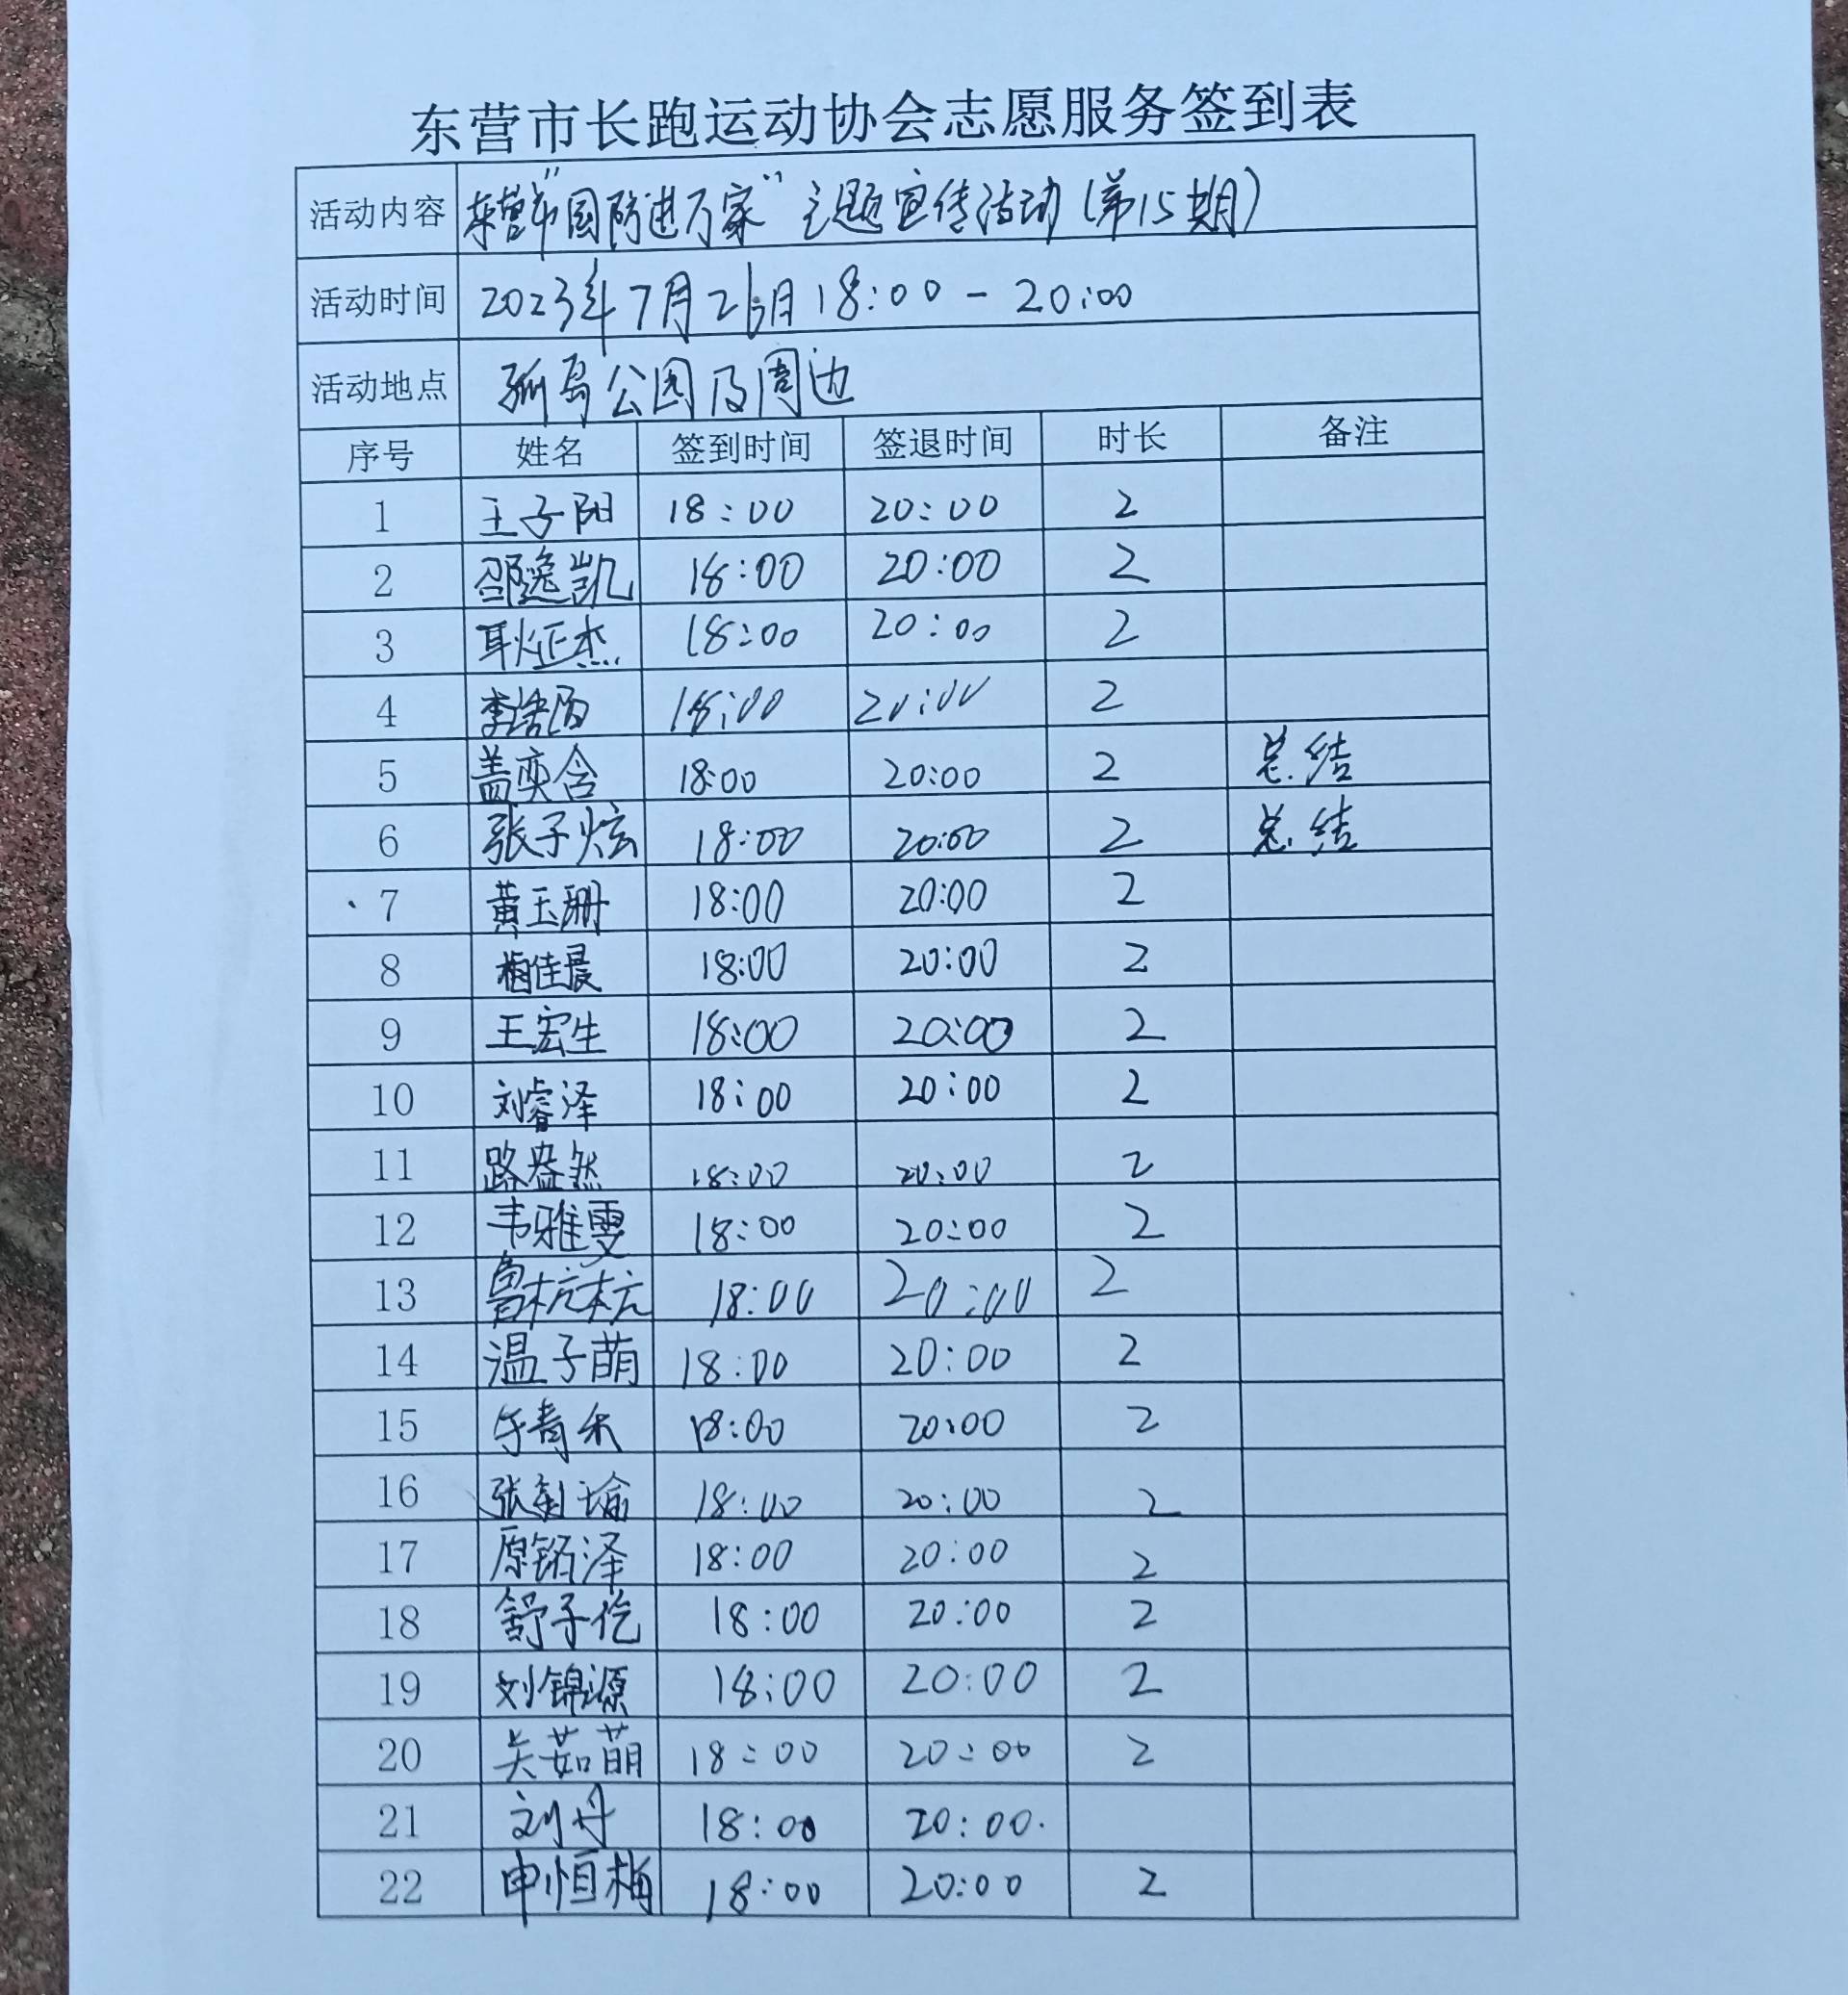 东营市长跑运动协会志愿服务签到表
活动内容 东营市"国防进万家"主题宣传活动(第15期)
活动时间 2023年7月 日18:00-20:00
活动地点 孤岛公园及周边
序号 姓名 签到时间 签退时间 时长 备注
1 王子阳 18:00 20:00 2
2 邵逸凯 18:00 20:00 2
3 耿正杰 18:00 20:00 2
4 李浩 18:00 20:00 2
5 盖奕含 18:00 20:00 2 总结
6 张子炫 18:00 20:00 2 总结
7 黄玉珊 18:00 20:00 2
8 佳晨 18:00 20:00 2
9 王宏生 18:00 20:00 2
10 刘睿泽 18:00 20:00 2
11 路盎然 18:00 20:00 2
12 韦雅雯 18:00 20:00 2
13 鲁杭杭 18:00 20:00 2
14 温子萌 18:00 20:00 2
15 青禾 18:00 20:00 2
16 张 瑜 18:00 20:00 2
17 原铭泽 18:00 20:00 2
18 舒子仡 18:00 20:00 2
19 刘锦源 18:00 20:00 2
20 茹萌 18:00 20:00 2
21 刘丹 18:00 20:00.
22 申恒梅 18:00 20:00 2